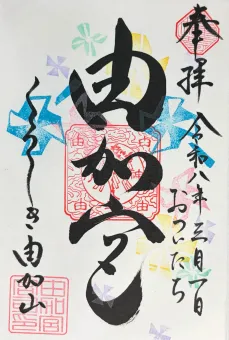 奉拝
令和八年三月一日
おついたち
由加山
くらしき由加山